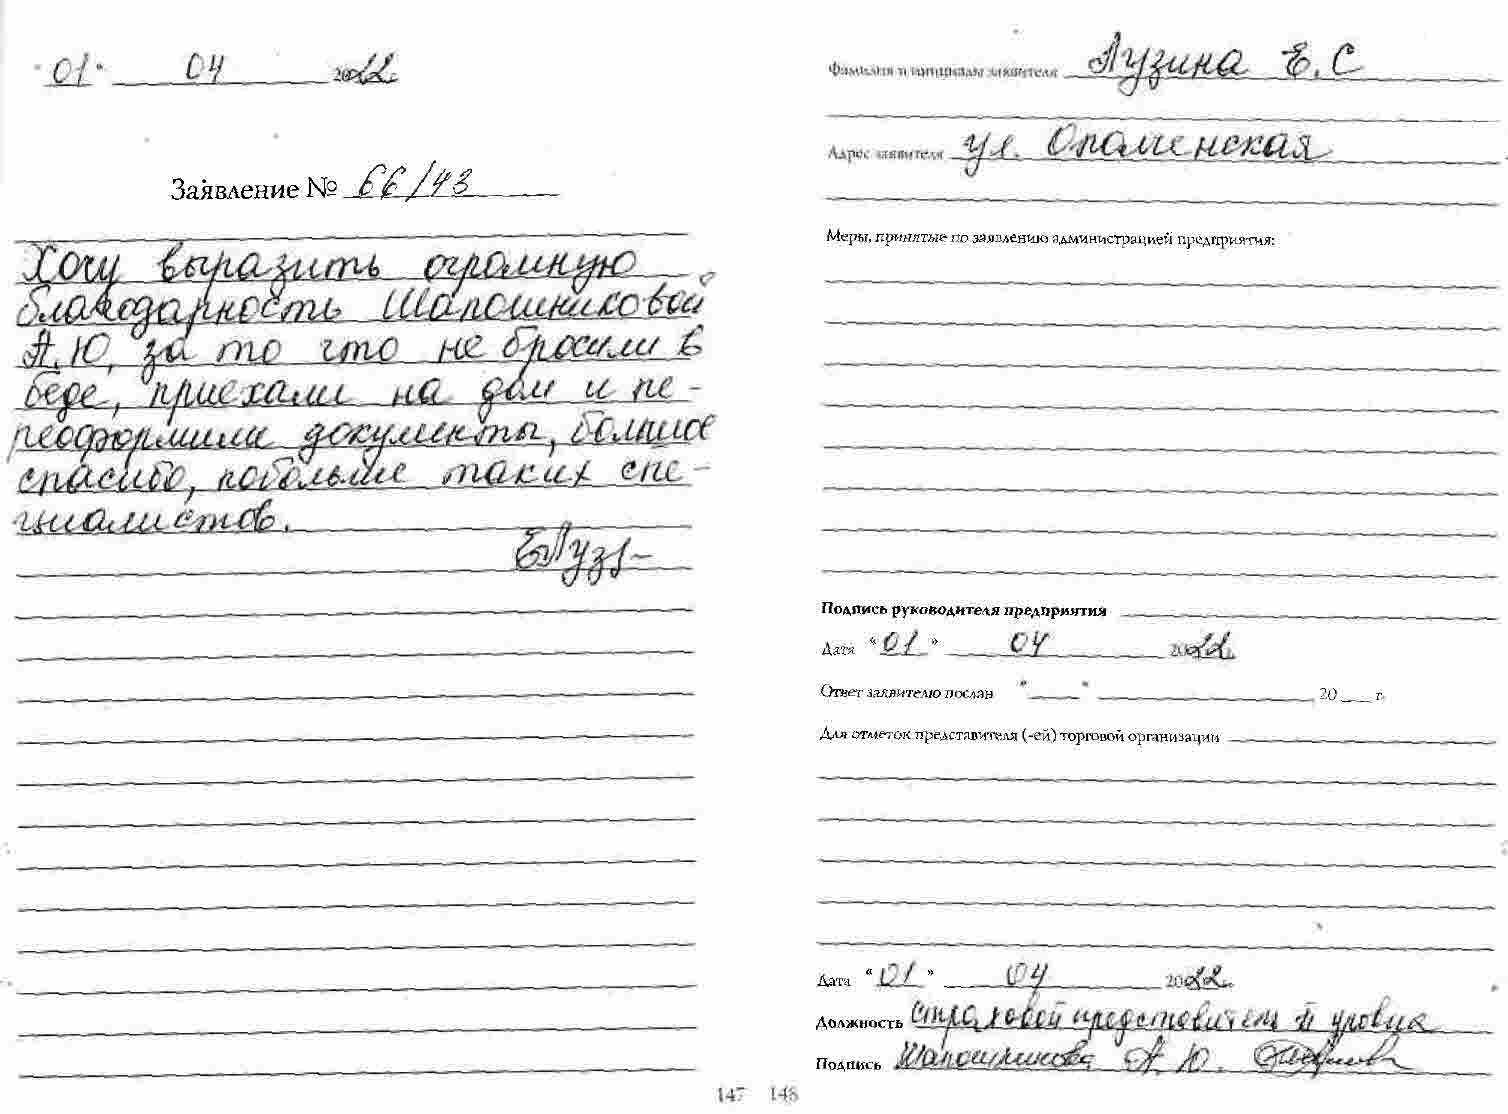 "01" 04 2022
Заявление № 66/43
Хочу выразить огромную
благодарность Шапошниковой
А.Ю, за то что не бросили в
беде, приехали на дом и пе-
реоформили документы, большое
спасибо, побольше таких спе-
циалистов.
Фамилия и инициалы заявителя Лузина Е. С
Адрес заявителя ул. Опалненская
Меры, принятые по заявлению администрацией предприятия:
Подпись руководителя предприятия
Дата "01" 04 2022
Ответ заявителю послан " " 20 г.
Для отметок представителя (-ей) торговой организации
Дата "01" 04 2022
Должность страховой представитель II уровня
Подпись Шапошникова А. Ю.
147 148